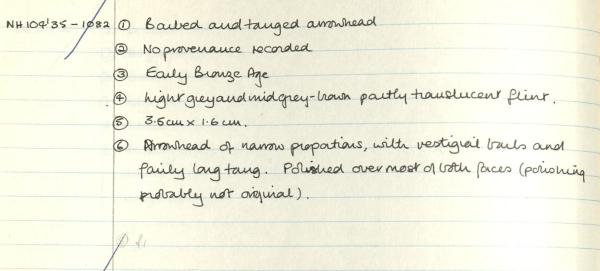 NH104'35-1082 ① Barbed and tanged arrowhead
② No provenance recorded
③ Early Bronze Age
④ Light grey and mid grey-brown partly translucent flint.
⑤ 3.5cm x 1.6cm.
⑥ Arrowhead of narrow propations, with vestigial barbs and
fairly long tang. Polished over most of both faces (polishing
probably not original).